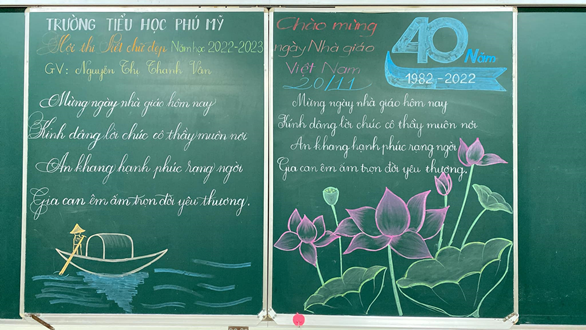 TRƯỜNG TIỂU HỌC PHÚ MỸ
Hội thi Viết chữ đẹp Năm học 2022-2023
GV: Nguyễn Thị Thanh Vân
Mừng ngày nhà giáo hôm nay
Kính dâng lời chúc cô thầy muôn nơi
An khang hạnh phúc rạng ngời
Gia can êm ấm trọn đời yêu thương.
Chào mừng
ngày Nhà giáo
Việt Nam
20/11
40
Năm
1982-2022
Mừng ngày nhà giáo hôm nay
Kính dâng lời chúc cô thầy muôn nơi
An khang hạnh phúc rạng ngời
Gia can êm ấm trọn đời yêu thương.